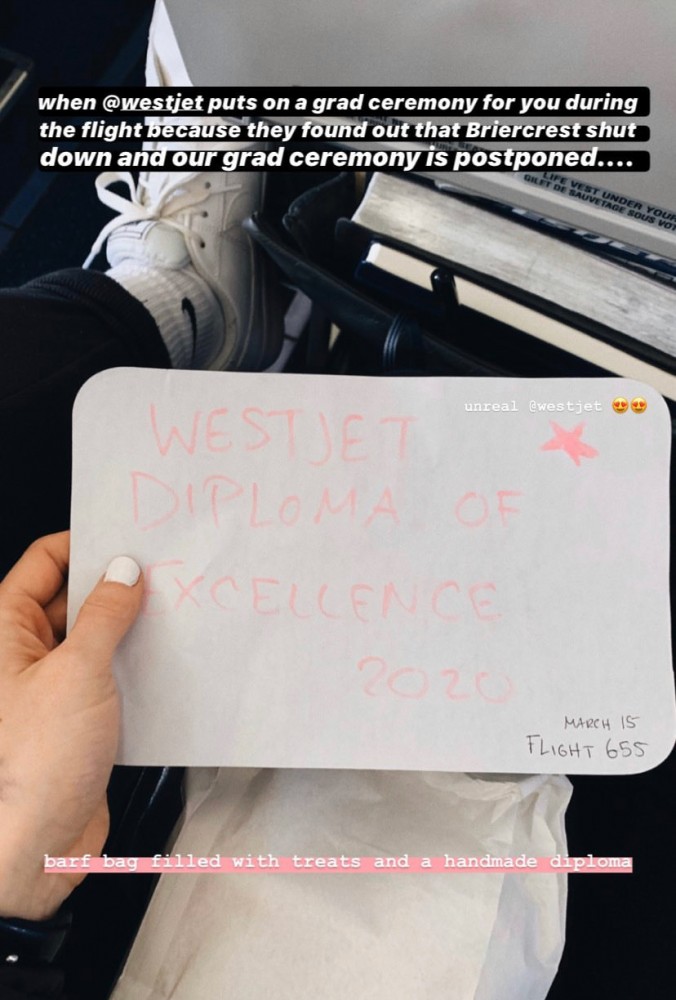 when @westjet puts on a grad ceremony for you during
the flight because they found out that Briercrest shut
down and our grad ceremony is postponed....
LIFE VEST UNDER YOUR
GILET DE SAUVETAGE SOUS VOT
unreal @westjet 😍😍
WESTJET
DIPLOMA OF
EXCELLENCE
2020
MARCH 15
FLIGHT 655
barf bag filled with treats and a handmade diploma